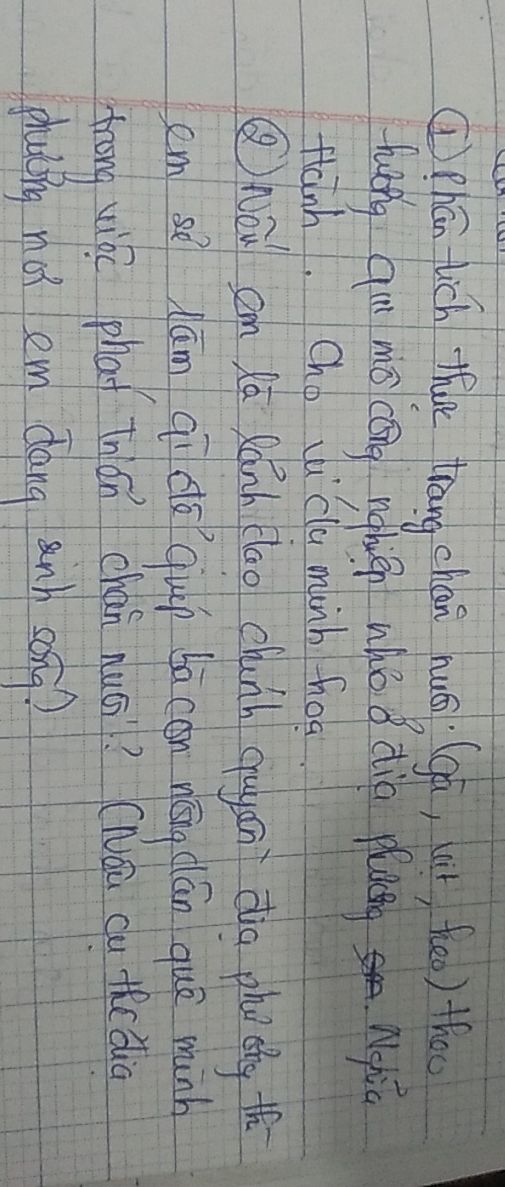 ① Phân tích thực trạng chăn nuôi (gà, vịt, heo) theo
hướng qui mô công nghiệp nhỏ ở địa phương Nghĩa
Hành. Cho ví dụ minh họa.
② Nếu em là lãnh đạo chính quyền địa phương thì
em sẽ làm gì để giúp bà con nông dân quê mình
trong việc phát triển chăn nuôi? (Nêu cụ thể địa
phương nơi em đang sinh sống?)